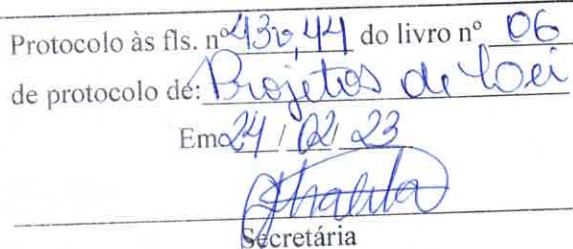 Protocolo às fls. nº 43v, 44 do livro nº 06
de protocolo de: Projetos de Lei
Em 24 / 02 / 23
Secretária